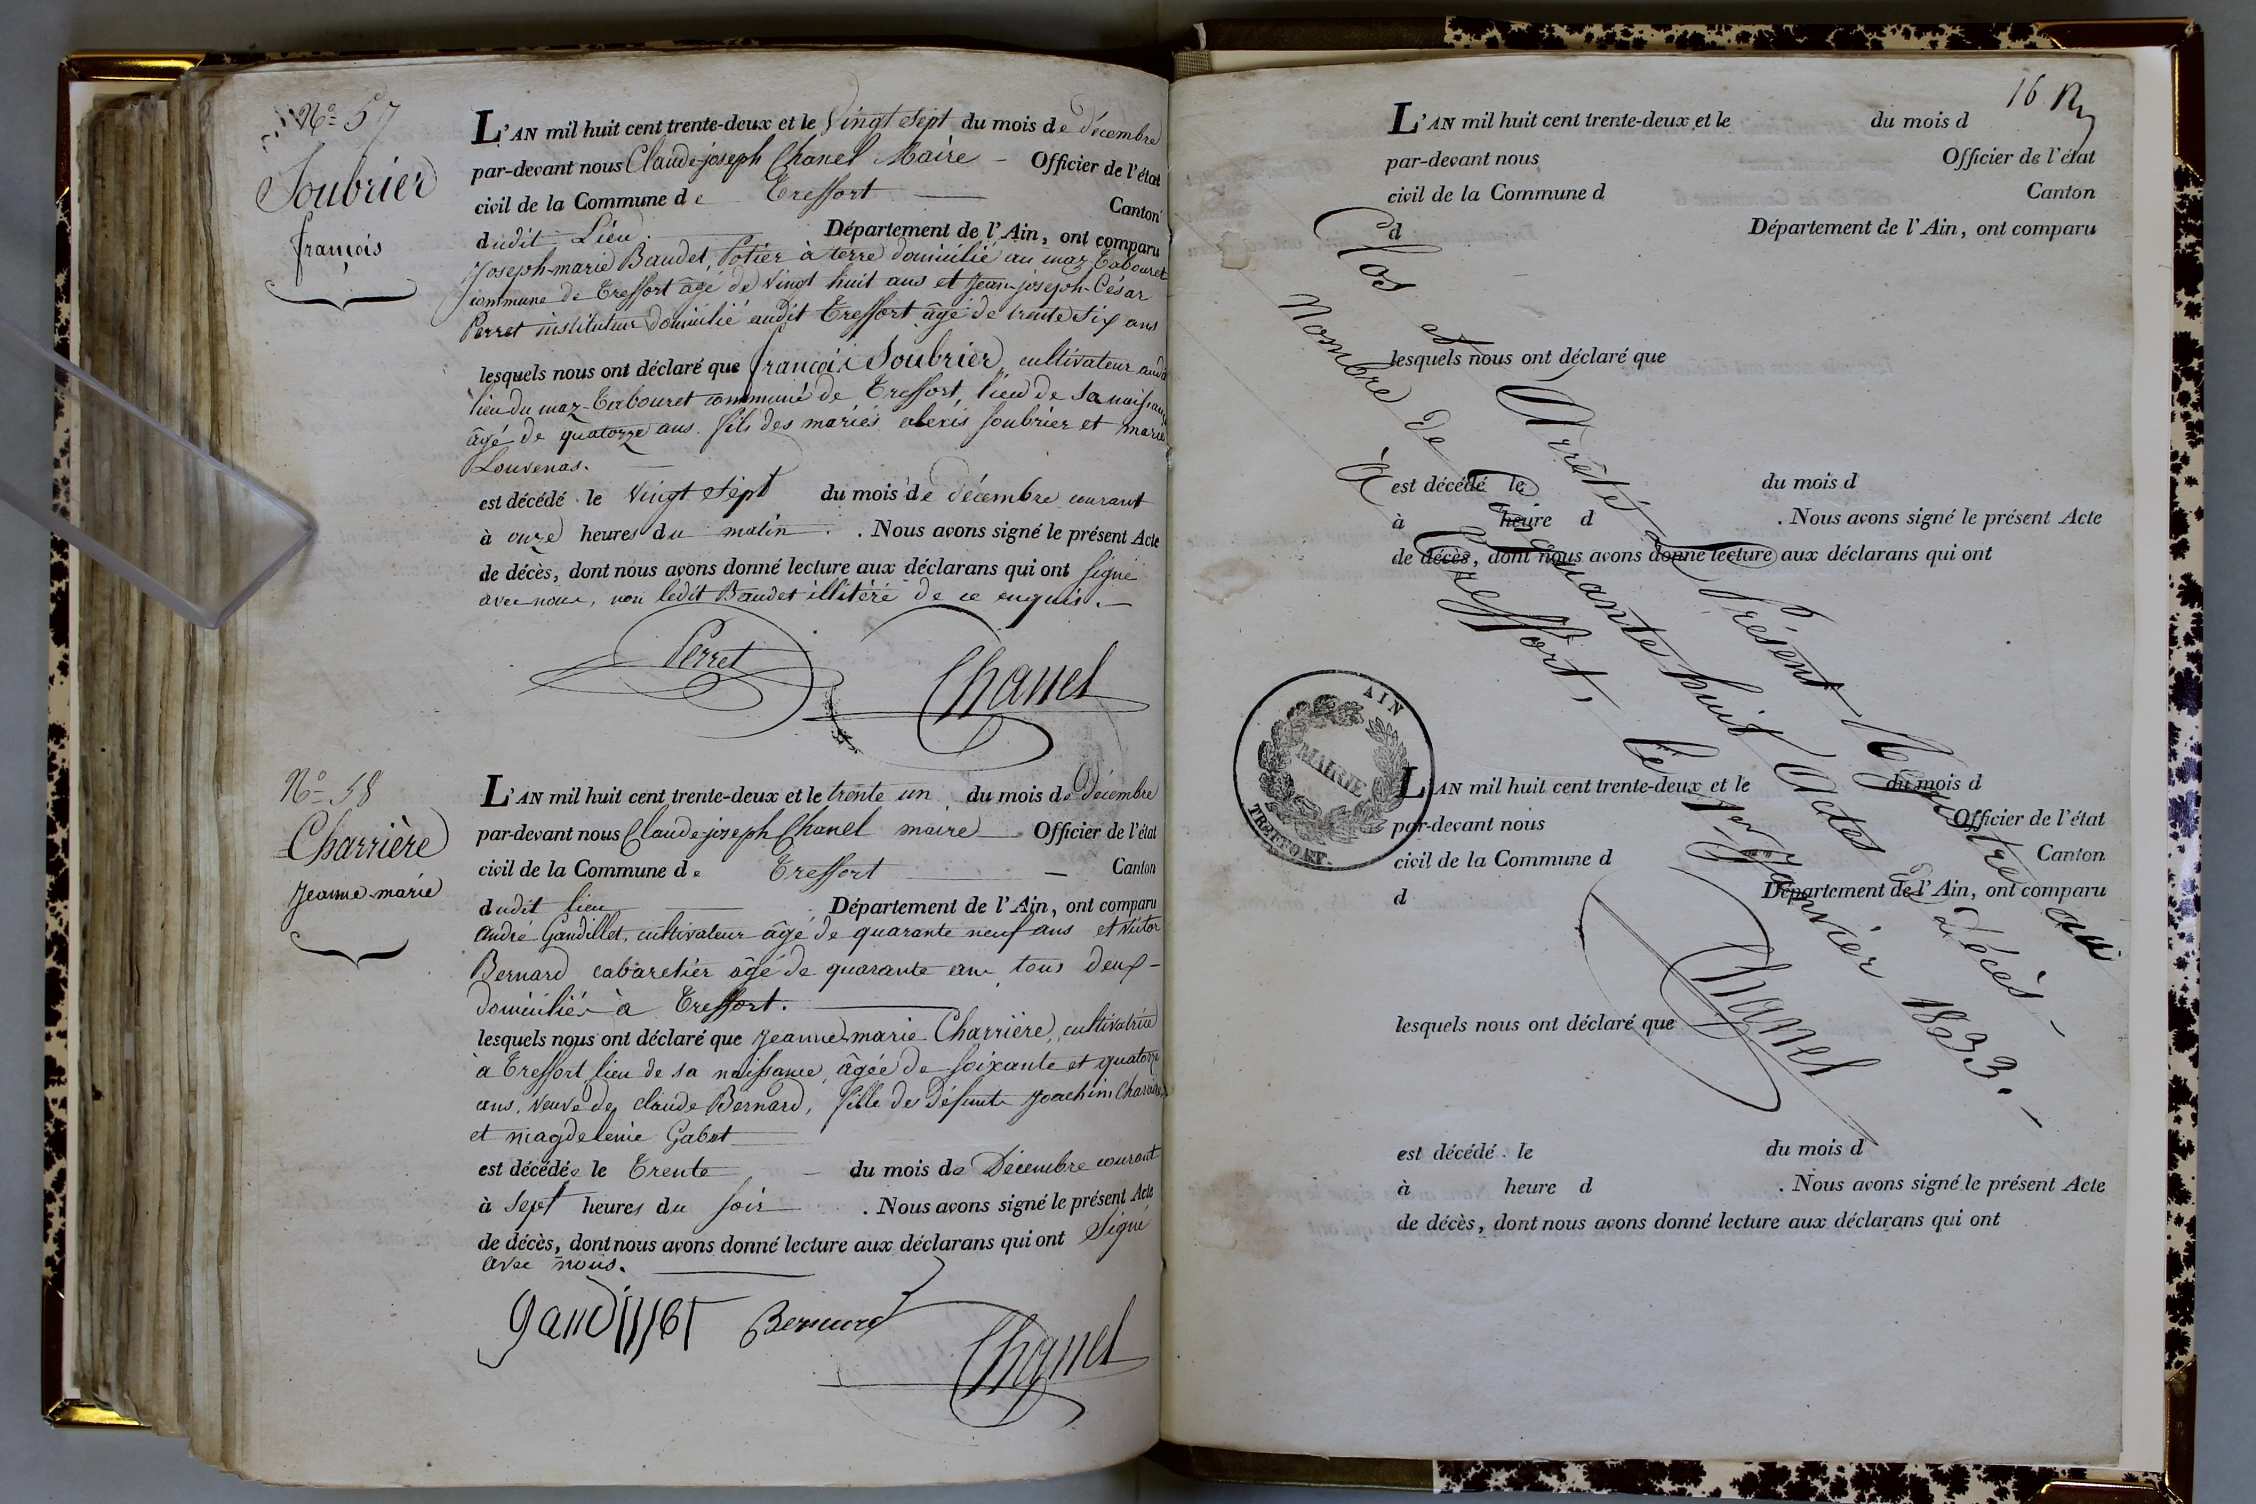 N° 57
Soubrier
françois
L'AN mil huit cent trente-deux et le Vingt Sept du mois de décembre
par-devant nous Claude-joseph Chanel Maire Officier de l'état
civil de la Commune de Treffort Canton
dudit Lieu. Département de l'Ain, ont comparu
Joseph-marie Baudet, Potier à terre domicilié au maz Tabouret
commune de Treffort âgé de vingt huit ans et Jean-joseph-César
Perret instituteur domicilié audit Treffort âgé de trente six ans
lesquels nous ont déclaré que françois Soubrier, cultivateur audit
lieu du maz-Tabouret commune de Treffort, lieu de sa naissance
âgé de quatorze ans. fils des mariés alexis soubrier et marie
Louvenas.
est décédé le Vingt Sept du mois de décembre courant
à onze heures du matin. Nous avons signé le présent Acte
de décès, dont nous avons donné lecture aux déclarans qui ont signé
avec nous, non ledit Baudet illitéré de ce enquis.
Perret
Chanel
N° 58
Charrière
Jeanne-marie
L'AN mil huit cent trente-deux et le trente un du mois de Décembre
par-devant nous Claude-joseph Chanel maire Officier de l'état
civil de la Commune de Treffort Canton
dudit lieu Département de l'Ain, ont comparu
andré Gandillet, cultivateur âgé de quarante neuf ans et victor
Bernard cabaretier âgé de quarante ans, tous deux
domiciliés à Treffort.
lesquels nous ont déclaré que Jeanne marie Charrière, cultivatrice
à Treffort lieu de sa naissance, âgée de soixante et quatorze
ans, veuve de claude Bernard, fille des Défunts Joachim Charrière
et magdeleine Gabet
est décédée le Trente du mois de Décembre courant
à sept heures du soir. Nous avons signé le présent Acte
de décès, dont nous avons donné lecture aux déclarans qui ont Signé
avec nous.
gandillet
Bernard
Chanel
16
L'AN mil huit cent trente-deux et le du mois d
par-devant nous Officier de l'état
civil de la Commune d Canton
d Département de l'Ain, ont comparu
lesquels nous ont déclaré que
est décédé le du mois d
à heure d . Nous avons signé le présent Acte
de décès, dont nous avons donné lecture aux déclarans qui ont
Clos et Arrêté le Présent Registre au
Nombre de Cinquante huit Actes de décès
à Treffort, le 1er Janvier 1833.
Chanel
AIN
MAIRIE
TREFFORT.
L'AN mil huit cent trente-deux et le du mois d
par-devant nous Officier de l'état
civil de la Commune d Canton
d Département de l'Ain, ont comparu
lesquels nous ont déclaré que
est décédé le du mois d
à heure d . Nous avons signé le présent Acte
de décès, dont nous avons donné lecture aux déclarans qui ont